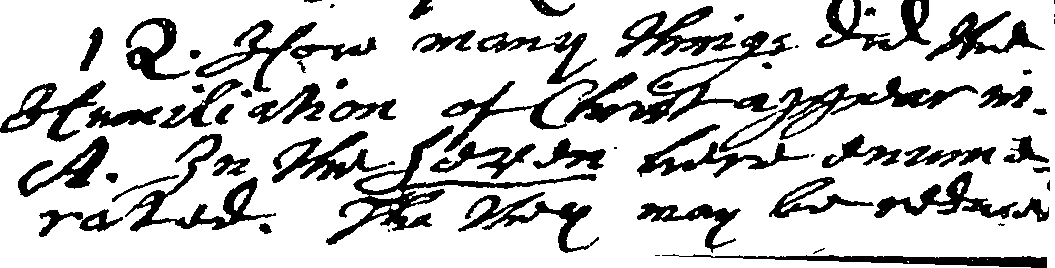 1 Q. How many things did the
Humiliation of Christ appear in.
A. In the seven here enume-
rated. Tho they may be reduced